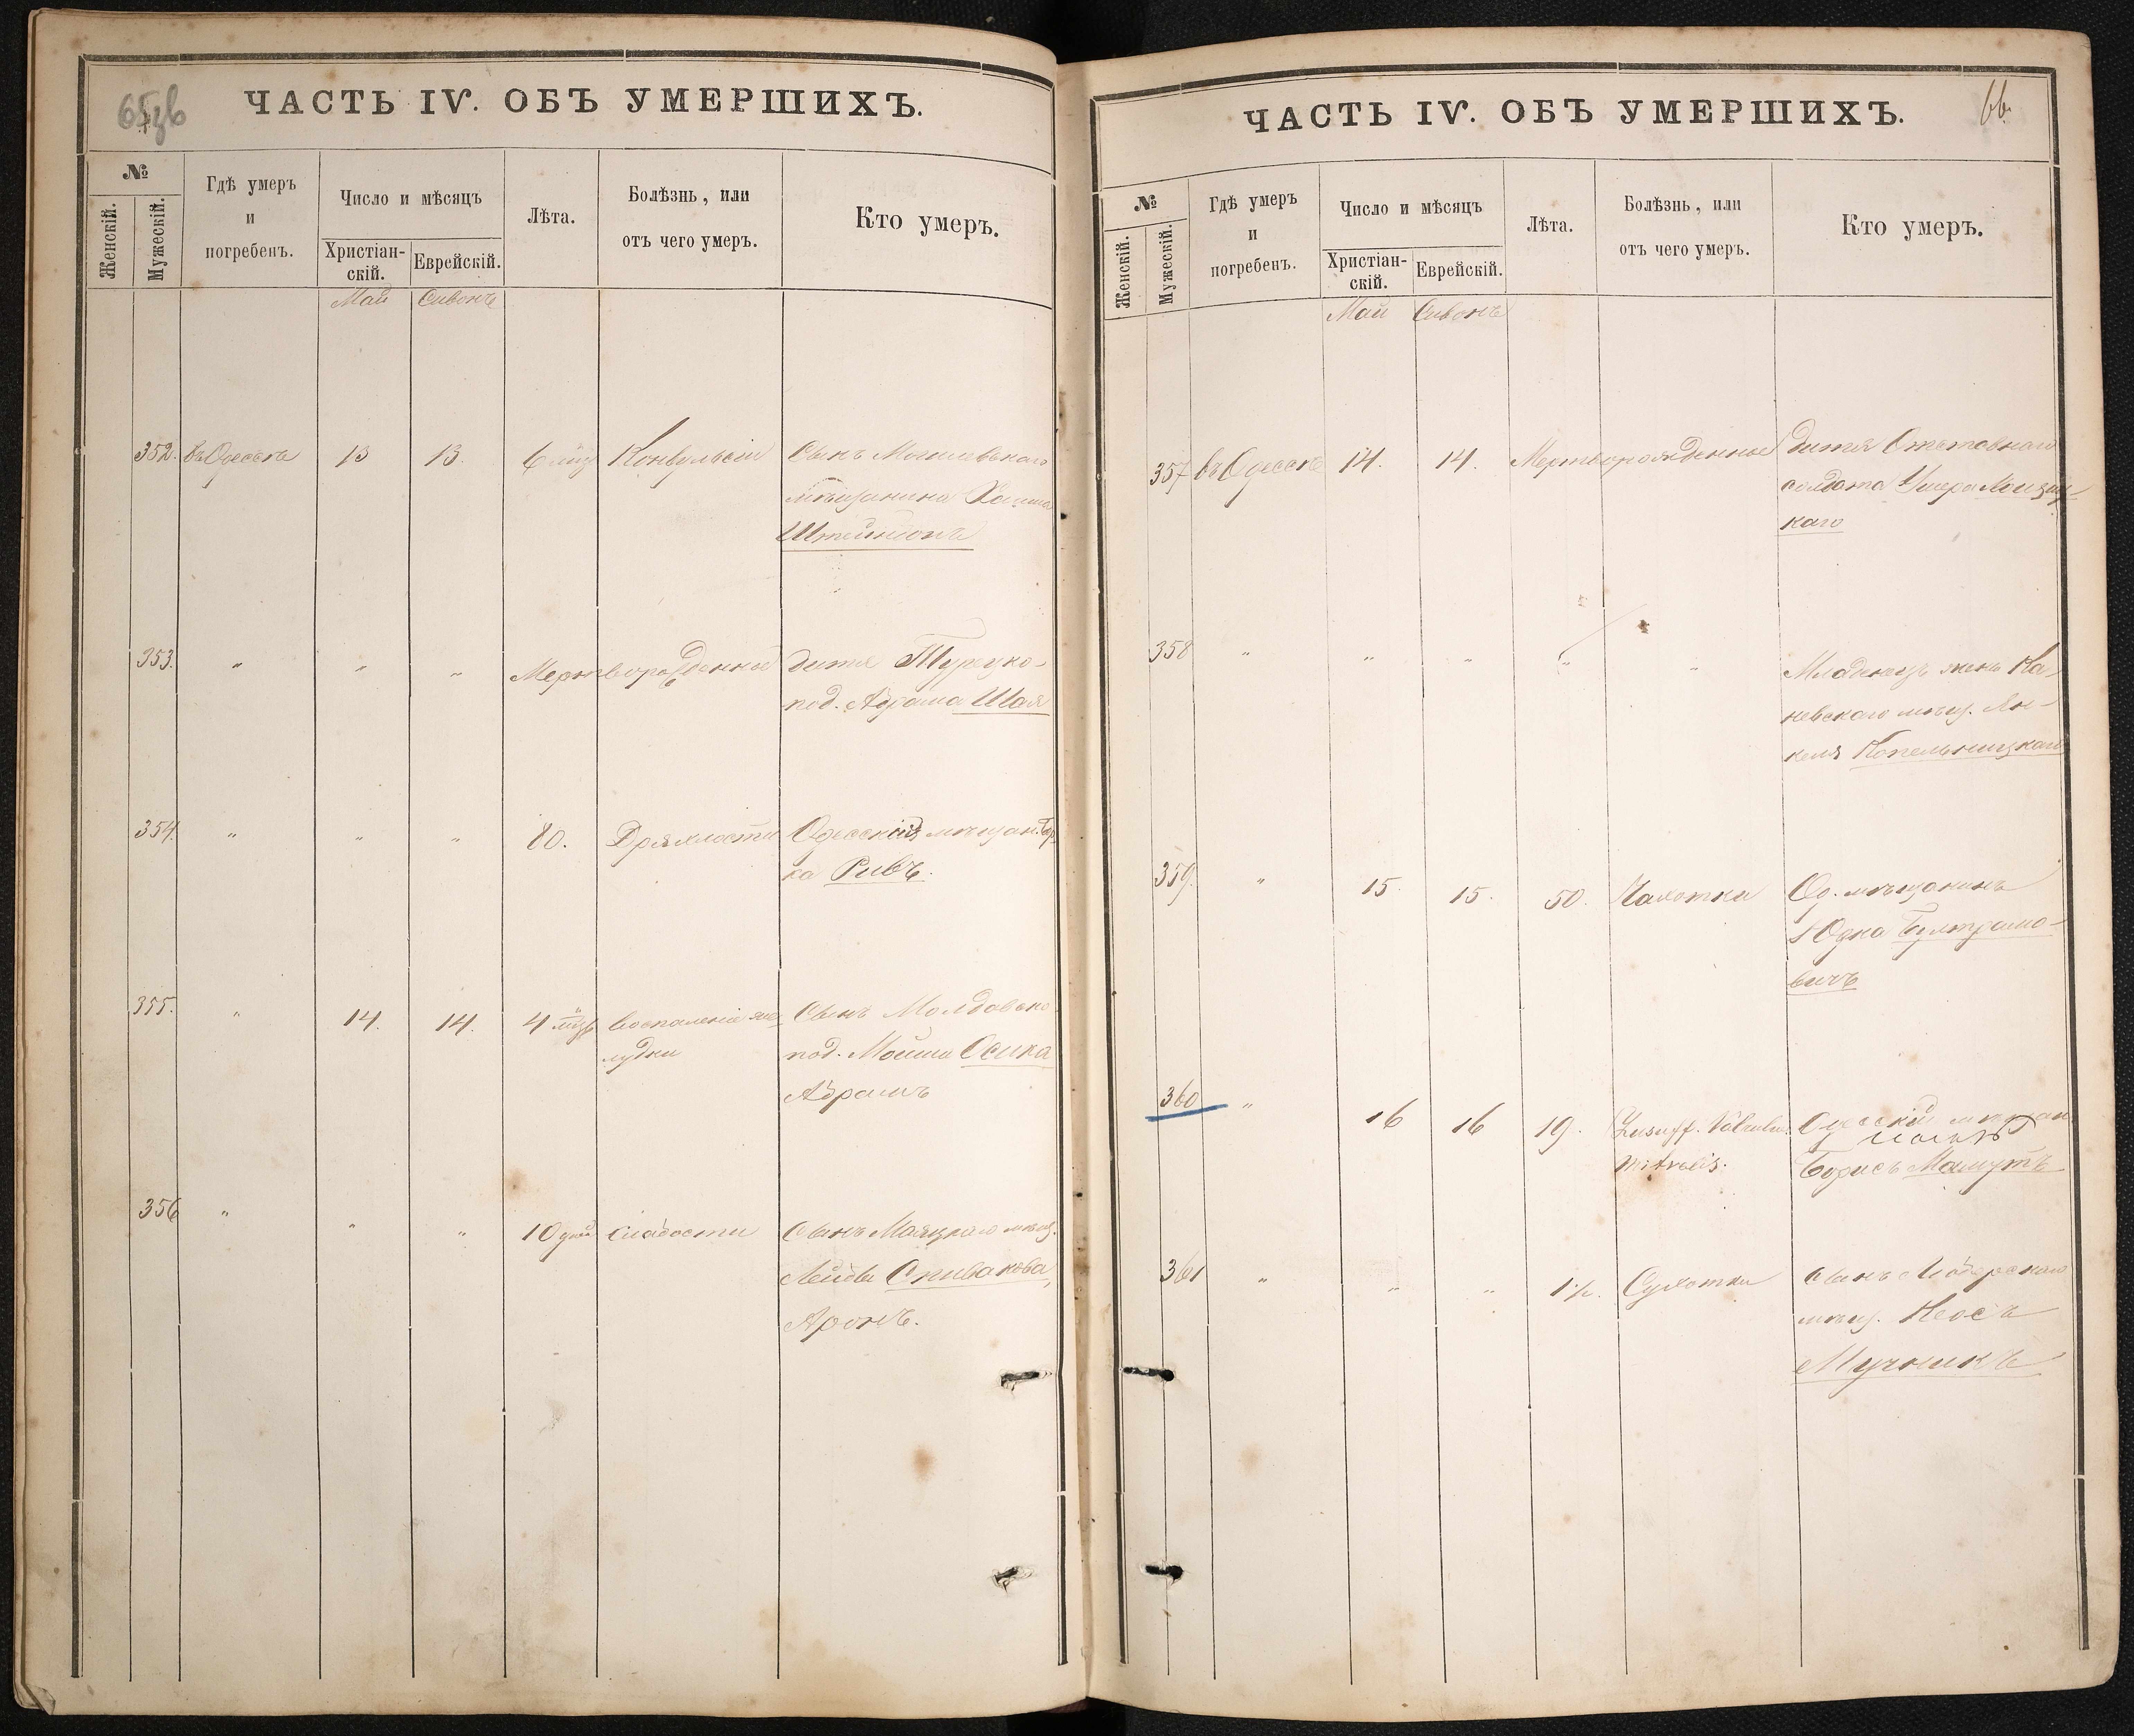 65зв
ЧАСТЬ IV. ОБЪ УМЕРШИХЪ.
№
Женскій.
Мужескій.
Гдѣ умеръ
и
погребенъ.
Число и мѣсяцъ
Христіан-
скій.
Еврейскій.
Лѣта.
Болѣзнь, или
отъ чего умеръ.
Кто умеръ.
Май Сивонъ
352. въ Одессѣ 13 13. 6 мѣц Конвульсіи Сынъ Могилевскаго
мѣщанина Хаима
353. " " " Мертворожденное дитя Турецко-
под. Абрама Шая
354. " " " 80. Дряхлости Одесскій мѣщан. Бер-
ка Ривъ.
355. " 14. 14. 4 мѣц воспаленіе же-
лудки
Сынъ Молдавско-
под. Мойши Осипа
Абрамъ
356 " " " 10 дней слабости Сынъ Маяцкаго мѣщ.
Лейбы Спивакова,
Аронъ.
66.
ЧАСТЬ IV. ОБЪ УМЕРШИХЪ.
№
Женскій.
Мужескій.
Гдѣ умеръ
и
погребенъ.
Число и мѣсяцъ
Христіан-
скій.
Еврейскій.
Лѣта.
Болѣзнь, или
отъ чего умеръ.
Кто умеръ.
Май Сивонъ
357 въ Одессѣ 14. 14. Мертворожденное дитя Отставнаго
солдата Ушера
каго
358 " " " " " Младенецъ женъ Ка-
невскаго мѣщ. Ян-
келя Копельницкаго
359. " 15. 15. 50. Чахотки Од. мѣщанинъ
Юдка Бултрамо-
вичъ
360 " 16 16 19. Insuff. Valvulae
mitralis.
Одесскій мѣщан
Борисъ Мамутъ
361 " " " 1½. Сухотки Сынъ
мѣщ.
Мучникъ